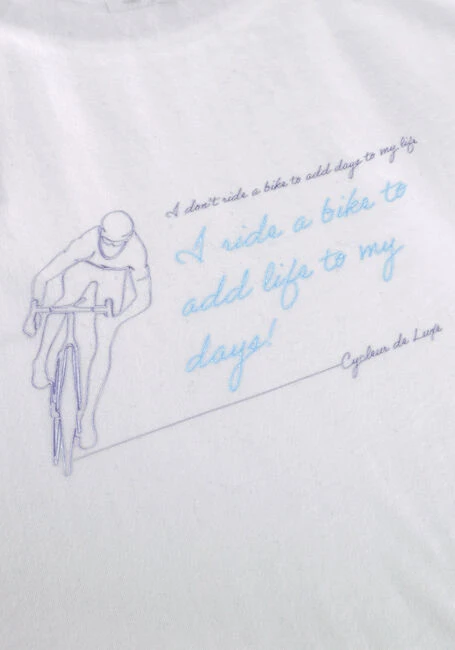 I don't ride a bike to add days to my life
I ride a bike to
add life to my
days!
Cycleur de Luxe